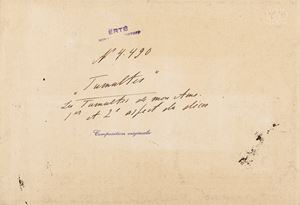 ERTÉ
Nº 4.490
"Tumultes"
Les Tumultes de mon Ame.
1er et 2e aspect du décor
Composition originale